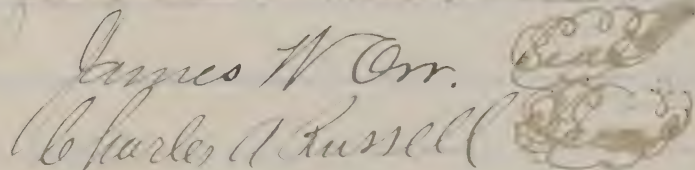 James W Orr. Seal
Charles A Russell